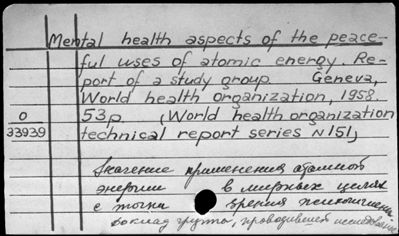 Mental health aspects of the peace-
ful uses of atomic energy. Re-
port of a study group Geneva,
World health organization, 1958.
0 53p. (World health organization
33939 technical report series N151)
Значение применения атомной
энергии в мирных целях
с точки зрения психогигиены
доклад группы, проводившей исследование